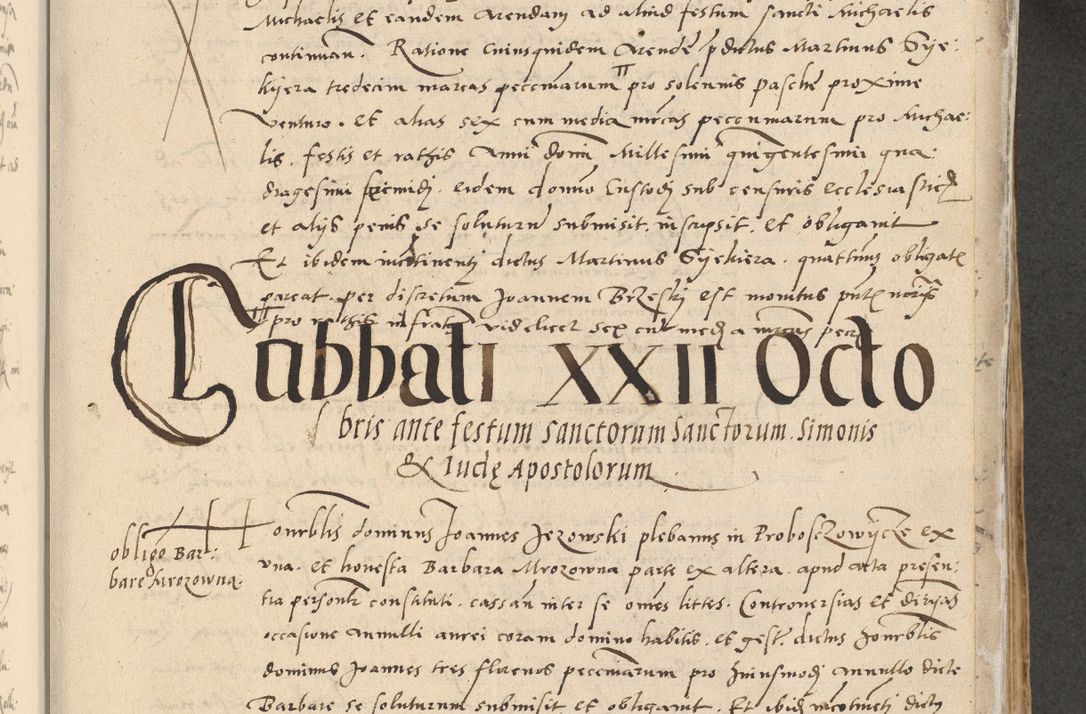 Michaelis et eandem Arendam ad aliud festum sancti Michaelis
continuan. Ratione cuiusquidem Arende pdictus Martinus Sye:
kyera tredecim marcas pecuniarum pro solennis pasche proxime
venturo. et alias sex cum media mrcas pecuniarum pro Michae:
lis. festis et rathis Anni domi Millesimi quigentesimi qua
dragesimi eidem domno Custodi sub censuris ecclesiastic
et alijs penis se soluturu submisit. inscripsit. et obligauit
Et ibidem incotinenti dictus Martinus Syekiera. quatinus obligat
pareat. per discretum Joannem Brzesky est monitus
pro rathis infra videlicet sex cu media mrcas pec
Sabbati XXII Octo
bris ante festum sanctorum Sanctorum. Simonis
& Iudę Apostolorum
Honrblis dominus Joannes Jezowski plebanus in Proboszowycze ex
obligo Bar:
bare Mrozowna.
vna. et honesta Barbara Mrozowna parte ex altera. apud acta presen:
tia personlr constituti. cassan inter se omes littes. Controuersias et
occasione Annulli aurei coram domino habitis. et gest. dictus honrblis
dominus Joannes tres florenos pecuniarum pro huiusmodi annullo dicte
Barbare se soluturum submisit et obligauit. Et ibid incotineti dictus